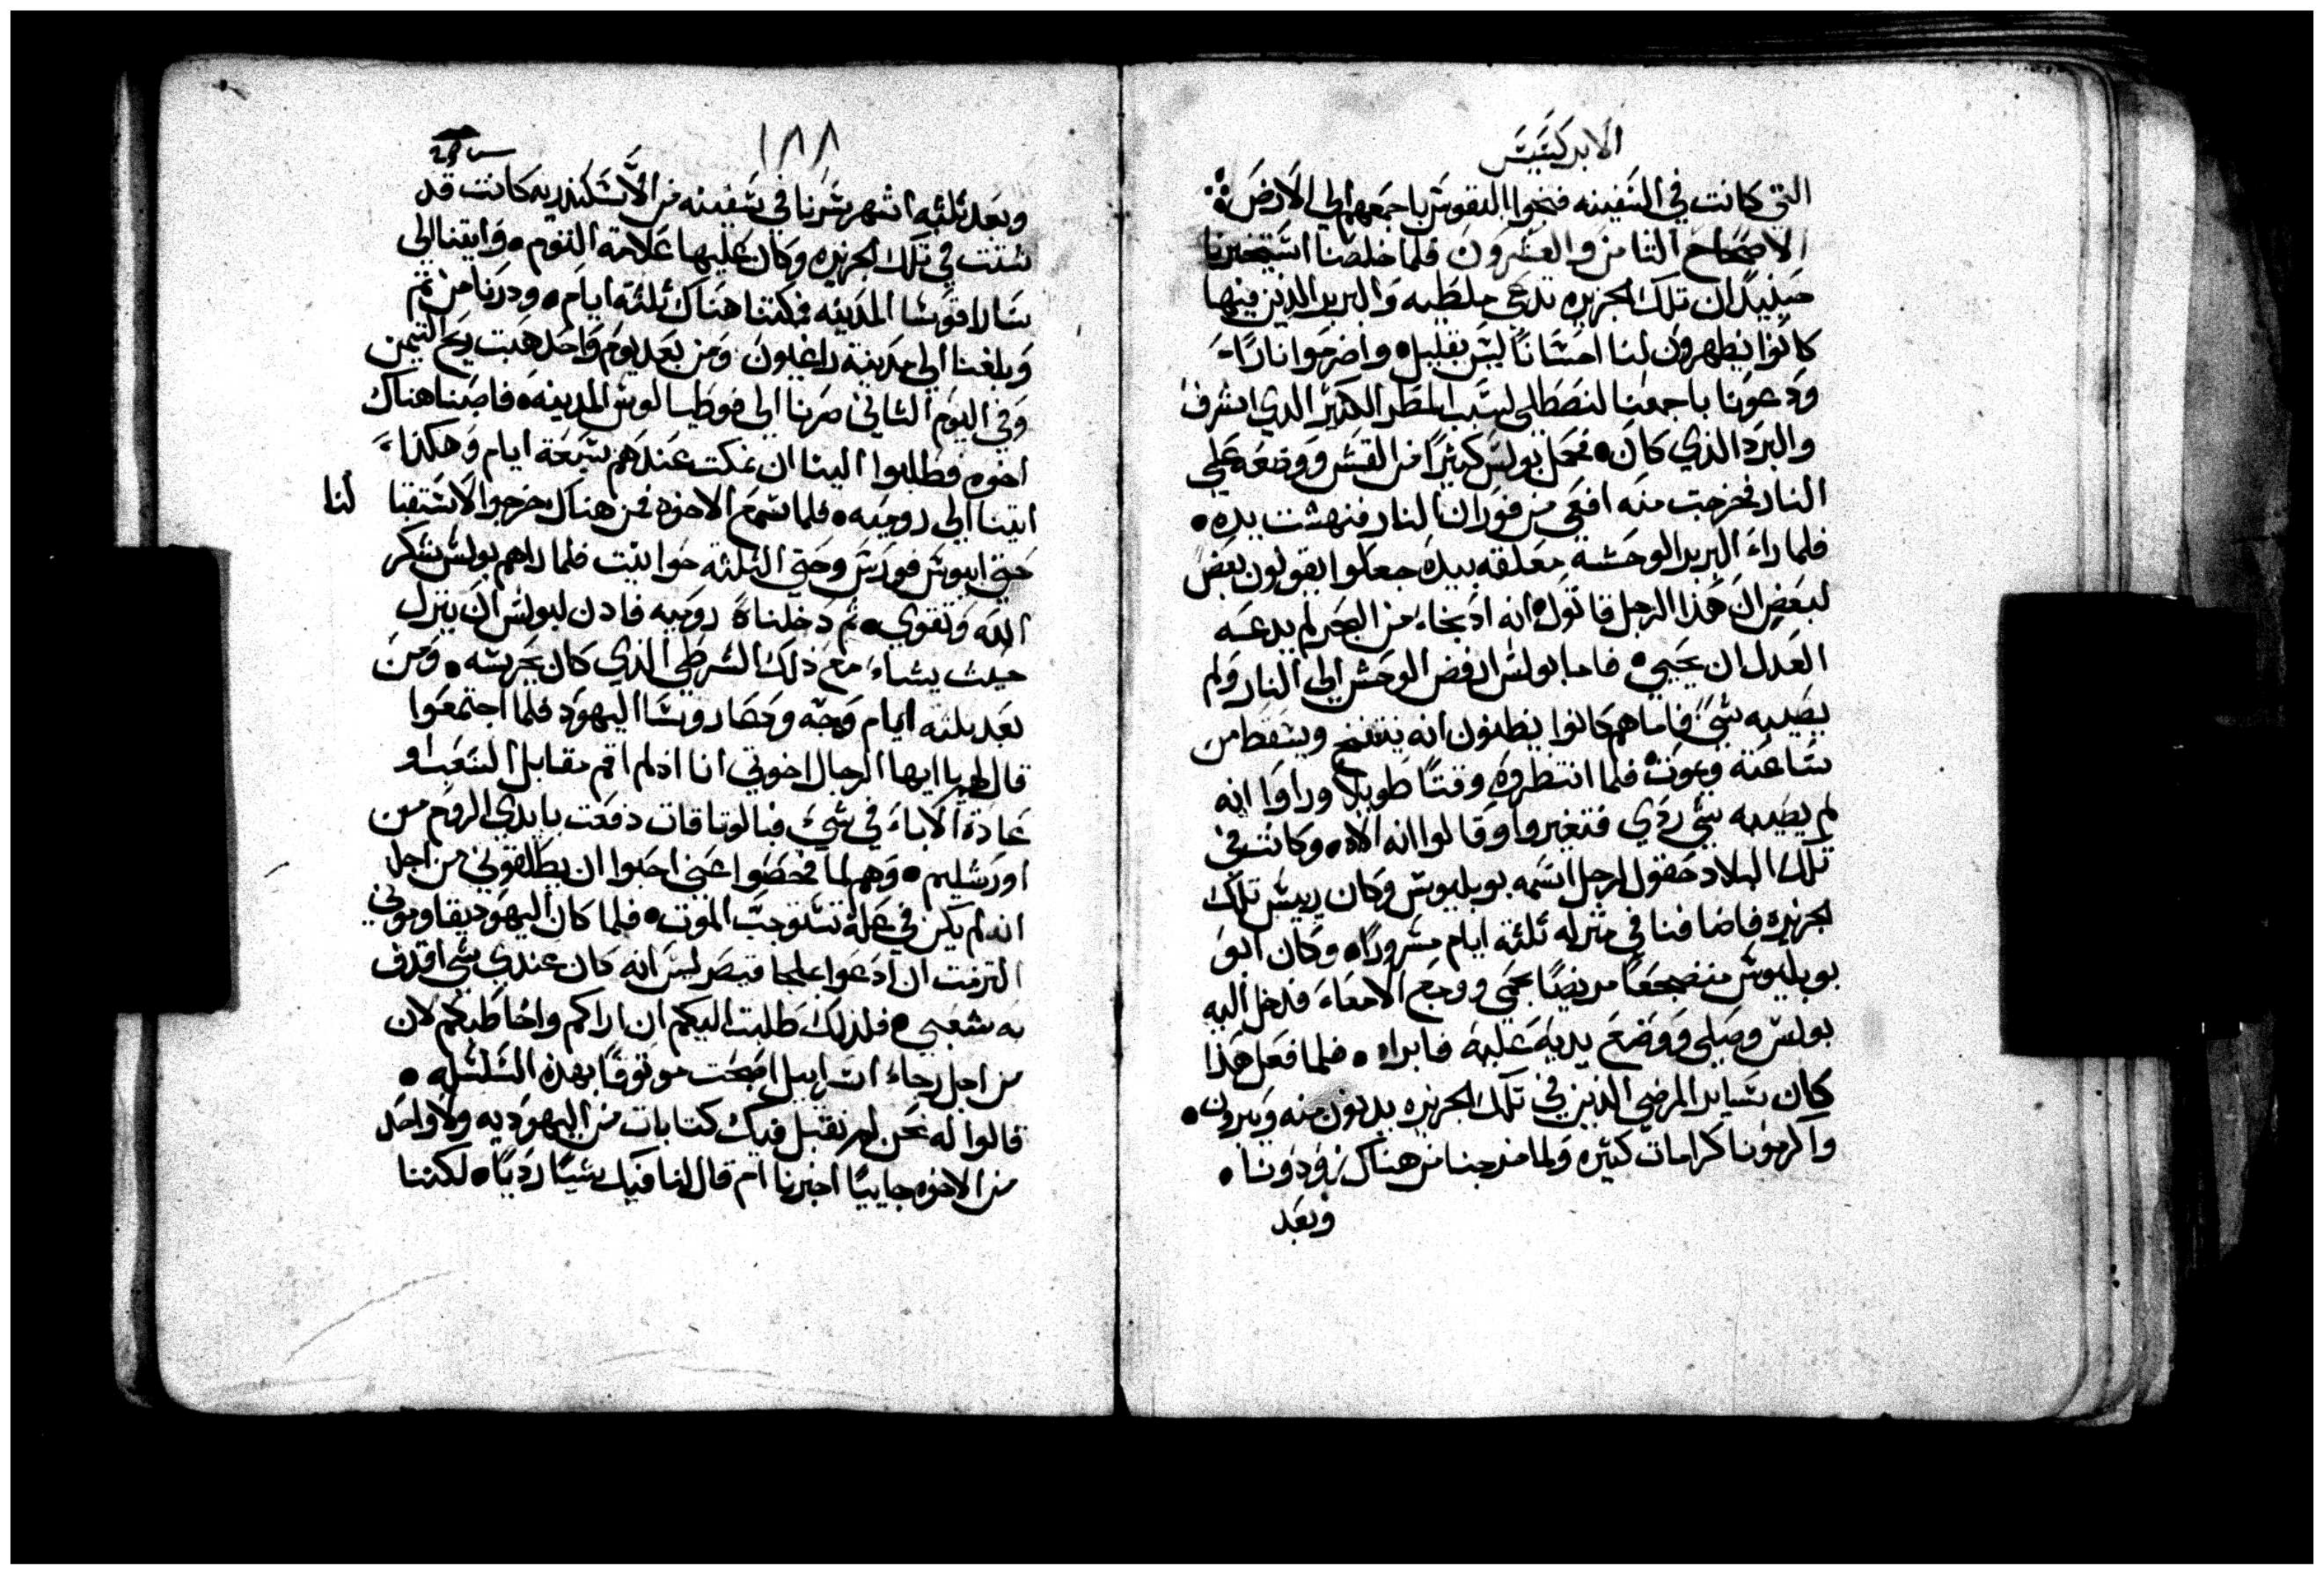 الابركسيس
التي كانت في السفينه فنجوا النفوس باجمعهم الي الارض
الاصحاح الثامن والعشرون فلما خلصنا استخبرنا
حينيذ ان تلك الجزيره تدعي ملطيه والبربر الذين فيها
كانوا يظهرون لنا احسانا ليس بقليل واضرموا نارا
ودعونا باجمعنا لنصطلي لسبب المطر الكثير الذي اشرف
والبرد الذي كان فحمل بولس كثيرا من القش ووضعه علي
النار فخرجت منه افعي من فوران النار فنهشت يده
فلما راء البربر الوحشة معلقه بيده جعلوا يقولون بعض
لبعض ان هذا الرجل قاتول انه اذ نجاء من البحر لم يدعه
العدل ان يحيي فاما بولس نفض الوحش الي النار ولم
يصيبه شي فاما هم كانوا يظنون انه ينتفخ ويسقط من
ساعته ويموت فلما انتظروه وقتا طويلا وراوا انه
لم يصيبه شي ردي فتغيروا وقالوا انه الاه وكانت في
تلك البلاد حقول لرجل اسمه بوبليوس وكان رييس تلك
الجزيره فاضافنا في منزله ثلثة ايام مسرورا وكان ابو
بوبليوس منضجعا مريضا بحمي ووجع الامعاء فدخل اليه
بولس وصلي ووضع يديه عليه فابراه فلما فعل هذا
كان ساير المرضي الذين في تلك الجزيره يدنون منه ويبرون
واكرمونا كرامات كثيره ولما خرجنا من هناك زودونا
وبعد
١٨٨
وبعد ثلثة اشهر سرنا في سفينه من الاسكندريه كانت قد
شتت في تلك الجزيره وكان عليها علامة التوم واتينا الي
ساراقوسا المدينه فمكثنا هناك ثلثة ايام ودرنا من ثم
وبلغنا الي مدينة راغيون ومن بعد يوم واحد هبت ريح التيمن
وفي اليوم الثاني صرنا الي فوطيالوس المدينه فاصبنا هناك
اخوه فطلبوا الينا ان نمكث عندهم سبعة ايام وهكذا
اتينا الي روميه فلما سمع الاخوه من هناك خرجوا لاستقبا لنا
حتي ابيوس فورس وحتي الثلثة حوانيت فلما راهم بولس شكر
الله وتقوي ثم دخلنا روميه فاذن لبولس ان ينزل
حيث يشاء مع ذلك الشرطي الذي كان يحرسه ومن
بعد ثلثة ايام وجه وحضار روسا اليهود فلما اجتمعوا
قال لهم يا ايها الرجال اخوتي انا اذ لم اقم مقابل الشعب او
عادة الاباء في شيء فبالوثاقات دفعت بايدي الروم من
اورشليم وهم لما فحصوا عني احبوا ان يطلقوني من اجل
انه لم يكن في علة تستوجب الموت فلما كان اليهود يقاوموني
التزمت ان ادعوا ملجا قيصر ليس انه كان عندي شي اقذف
به شعبي فلذلك طلبت اليكم ان اراكم واخاطبكم لان
من اجل رجاء اسراييل اصبحت موثوقا بهذه السلسله
قالوا له نحن لم نقبل فيك كتابات من اليهوديه ولا واحد
من الاخوه جاييا اخبرنا ام قال لنا فيك شيا رديا لكننا